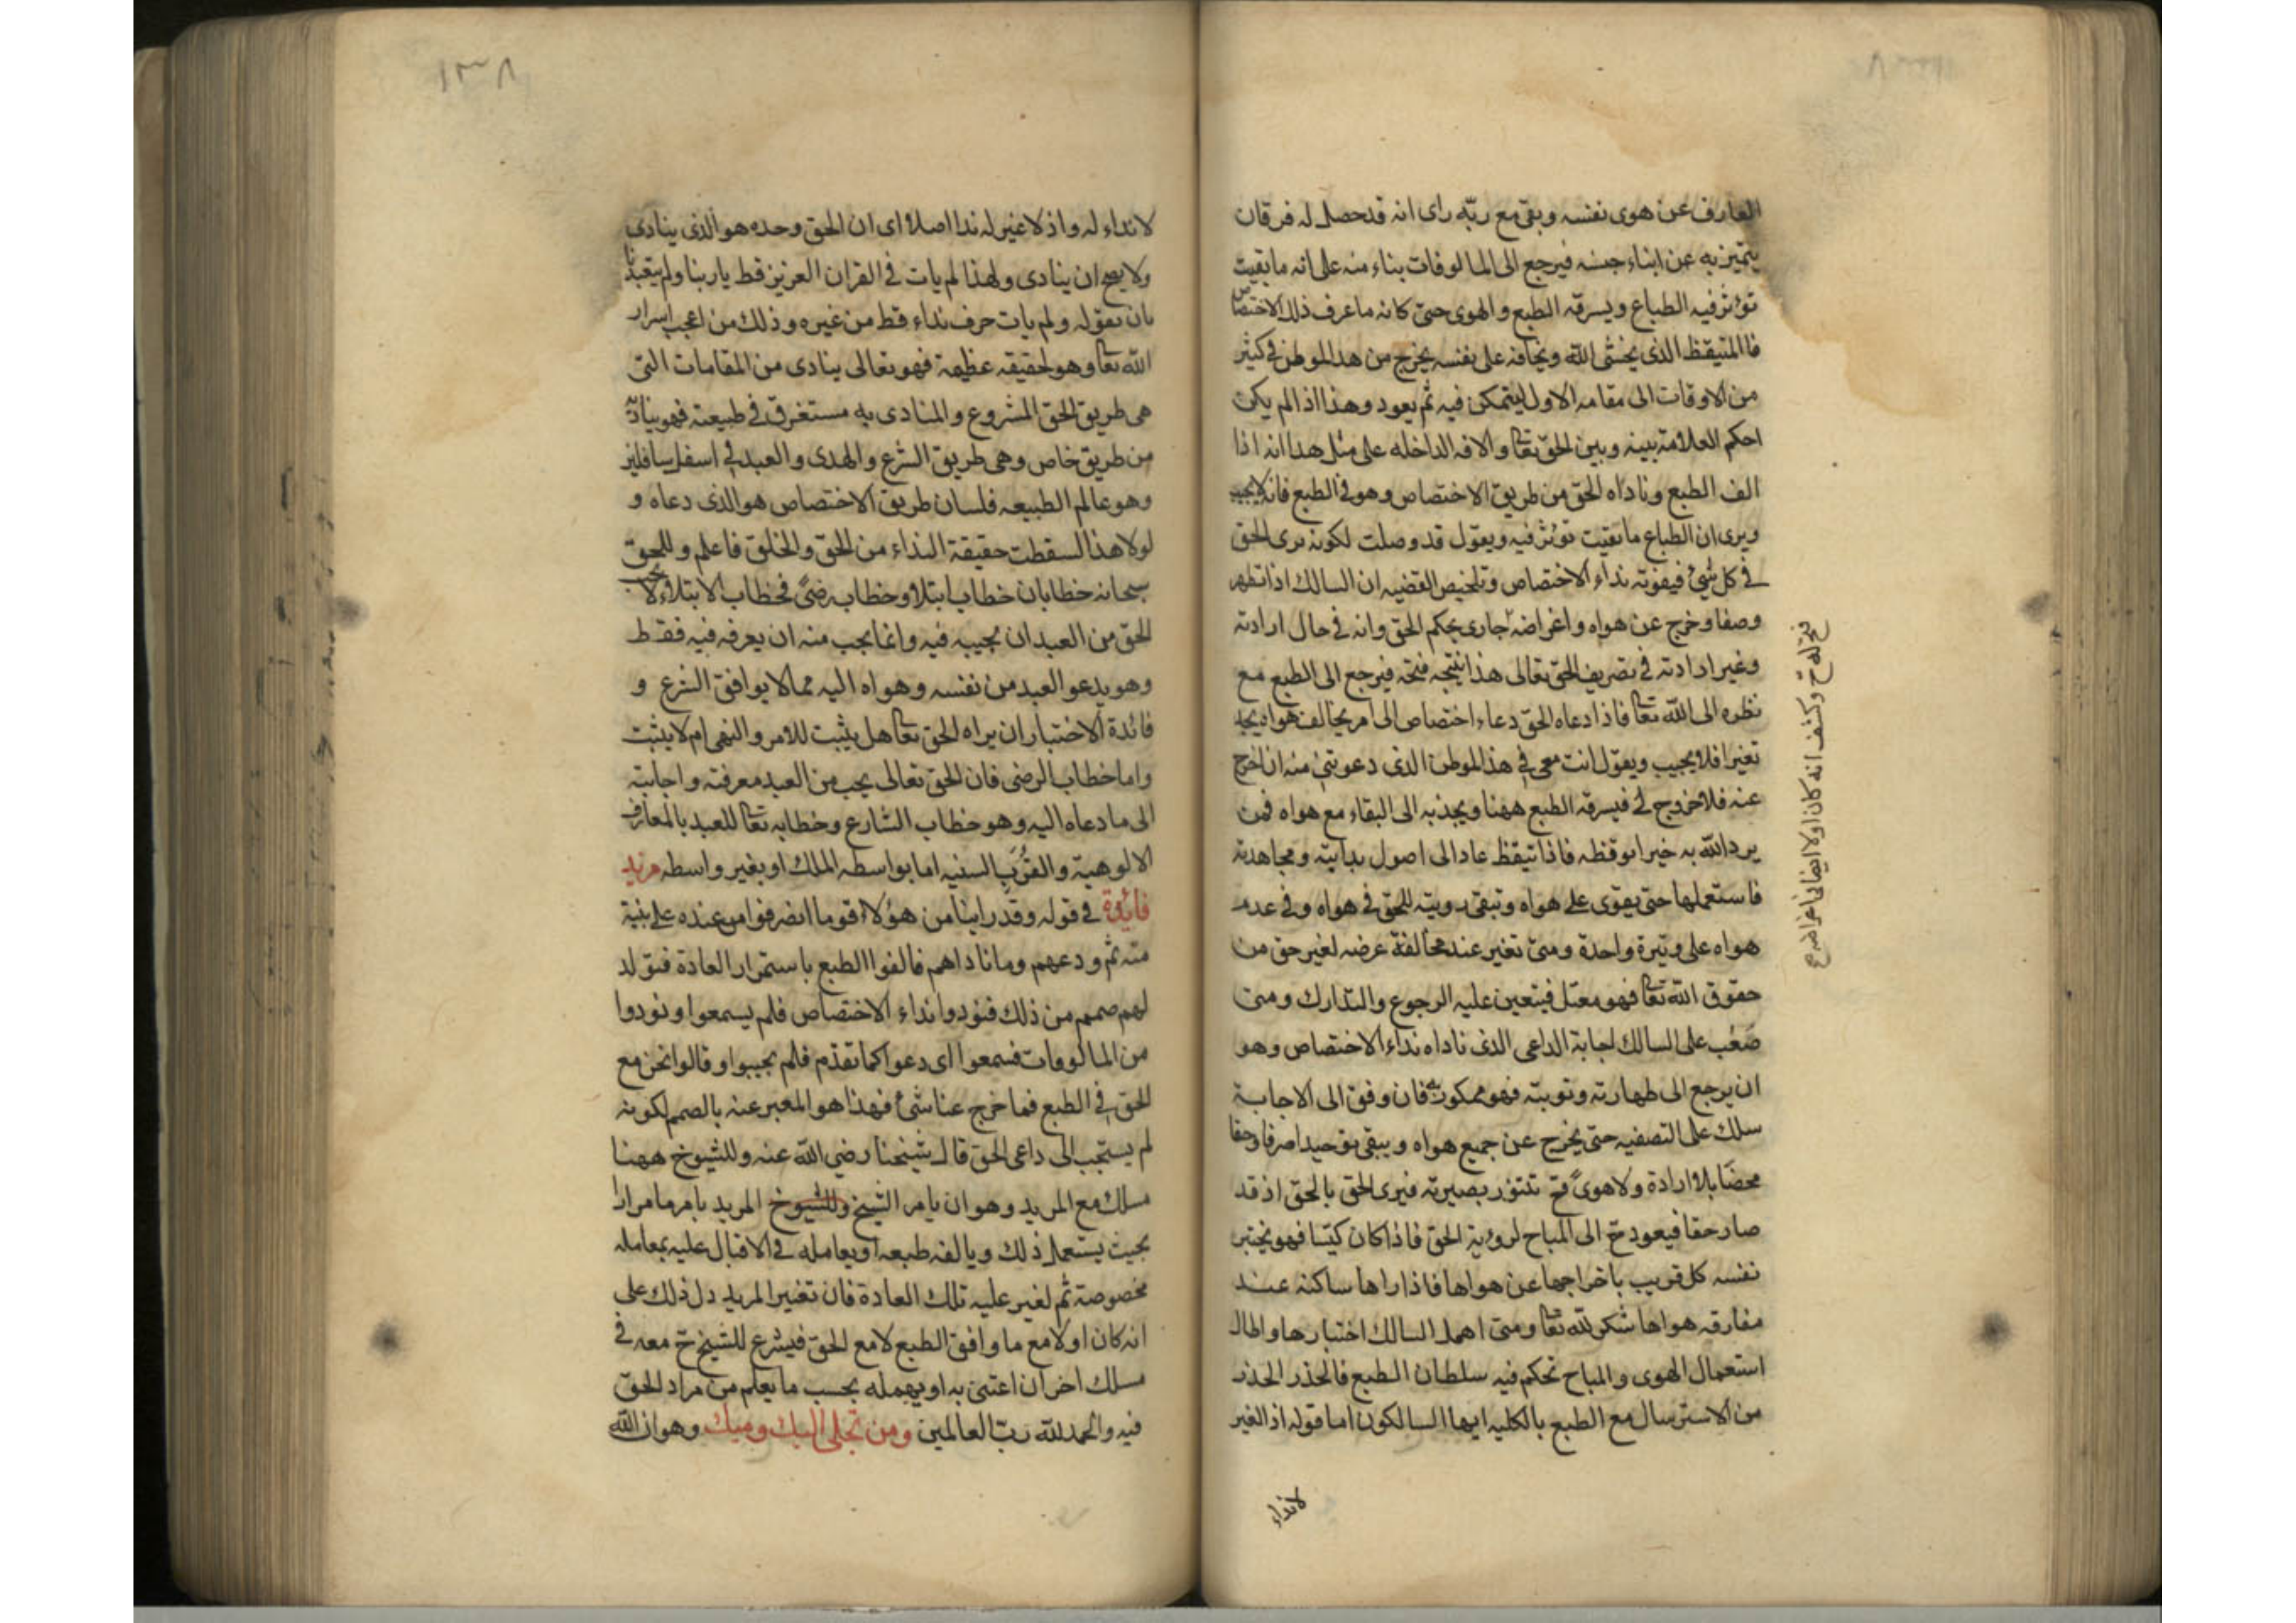 العارف عن هوى نفسه وبقى مع ربّه راى انه قد حصل له فرقان
يتميز به عن ابناء جنسه فيرجع الى المالوفات بناء منه على انه ما بقيت
تؤثر فيه الطباع ويسرقه الطبع والهوى حتى كانه ما عرف ذلك الاختصاص
فاالمتيقظ الذى يخشى الله ويخافه على نفسه يخرج من هذا الموطن فى كثير
من الاوقات الى مقامه الاول ليتمكن فيه ثم يعود وهذا اذا لم يكن
احكم العلامة بينه وبين الحق تعا والافه الداخله على مثل هذا انه اذا
الف الطبع وناداه الحق من طريق الاختصاص وهو فى الطبع فانه لا يجيب
ويرى ان الطباع ما بقيت تؤثر فيه ويقول قد وصلت لكونه يرى الحق
فى كل شئ فيفوته نداء الاختصاص وتلخيص القضيه ان السالك اذا تطهر
وصفا وخرج عن هواه واغراضه جارى بحكم الحق وانه فى حال ارادته
وغير ارادته فى تصريف الحق تعالى هذا نتيجه فتحه فيرجع الى الطبع مع
نظره الى الله تعا فاذا دعاه الحق دعاء اختصاص الى امر يخالف هواه يجد
تغيرا فلا يجيب ويقول انت معى فى هذا الموطن الذى دعوتنى منه ان اخرج
عنه فلا خروج لى فيسرقه الطبع ههنا ويجذبه الى البقاء مع هواه فمن
يرد الله به خيرا يوقظه فاذا تيقظ عاد الى اصول بدايته ومجاهدته
فاستعملها حتى يقوى على هواه وتبقى رويته للحق فى هواه وفى عدم
هواه على وتيرة واحدة ومتى تغير عند مخالفة عرضه لغير حق من
حقوق الله تعا فهو معتل فيتعين عليه الرجوع والتدارك ومتى
صَعُب على السالك اجابة الداعى الذى ناداه نداء الاختصاص وهو
ان يرجع الى طهارته وتوبته فهو ممكور به فان وفق الى الاجابة
سلك على التصفيه حتى يخرج عن جميع هواه ويبقى توحيدا صرفا وحقا
محضًا بلا ارادة ولا هوىً فح تتنوّر بصيرته فيرى الحق بالحق اذ قد
صار حقا فيعود ح الى المباح لروية الحق فاذا كان كيّسا فهو يختبر
نفسه كل قريب باخراجها عن هواها فاذا راها ساكنه عند
مفارقه هواها شكر لله تعا ومتى اهمل السالك اختبارها واطال
استعمال الهوى والمباح تحكم فيه سلطان الطبع فالحذر الحذر
من الاسترسال مع الطبع بالكليه ايها السالكون اما قوله اذ الغير
لا نداء
وكشف انه كان اولا ايضا
١٣٨
لا نداء له واذ لا غير له ندا اصلا اى ان الحق وحده هو الذى ينادى
ولا يصح ان ينادى ولهذا لم يات فى القران العزيز قط يا ربنا ولم يتعبدنا
بان نقوله ولم يات حرف نداء قط من غيره وذلك من اعجب اسرار
الله تعا وهو لحقيقه عظيمة فهو تعالى ينادى من المقامات التى
هى طريق الحق المشروع والمنادى به مستغرق فى طبيعته فهو يناديه
من طريق خاص وهى طريق الشرع والهدى والعبد فى اسفل سافلين
وهو عالم الطبيعه فلسان طريق الاختصاص هو الذى دعاه و
لولا هذا لسقطت حقيقة النداء من الحق والخلق فاعلم وللحق
سبحانه خطابان خطاب ابتلاء وخطاب رضىً فخطاب الابتلاء لا يحب
الحق من العبد ان يجيبه فيه وانما يجب منه ان يعرفه فيه فقط
وهو يدعو العبد من نفسه وهواه اليه مما لا يوافق الشرع و
فائدة الاختبار ان يراه الحق تعا هل يثبت للامر والنهى ام لا يثبت
واما خطاب الرضى فان الحق تعالى يحب من العبد معرفته واجابته
الى ما دعاه اليه وهو خطاب الشارع وخطابه تعا للعبد بالمعارف
الالوهية والقُرَبِ السنيه اما بواسطه الملك او بغير واسطه مزيد
فائدة فى قوله وقد راينا من هؤلاء قوما انصرفوا من عنده على بنية
منه ثم ودعهم وما ناداهم فالفوا الطبع باستمرار العادة فتولد
لهم صمم من ذلك فنودوا نداء الاختصاص فلم يسمعوا ونودوا
من المالوفات فسمعوا اى دعوا كما تقدم فلم يجيبوا وقالوا نحن مع
الحق فى الطبع فما خرج عنا شئ فهذا هو المعبر عنه بالصمم لكونه
لم يستجب الى داعى الحق قال شيخنا رضى الله عنه وللشيوخ ههنا
مسلك مع المريد وهو ان يامر الشيخ وللشيوخ المريد بامر ما مرارا
بحيث يستعمل ذلك ويالفه طبعه او يعامله فى الاقبال عليه بمعامله
مخصوصة ثم لغير عليه تلك العادة فان تغير المريد دل ذلك على
انه كان اولا مع ما وافق الطبع لا مع الحق فيشرع للشيخ ح معه فى
مسلك اخر ان اعتنى به او يهمله بحسب ما يعلم من مراد الحق
فيه والحمد لله رب العالمين ومن تجلى اليك ومنك وهو ان الله